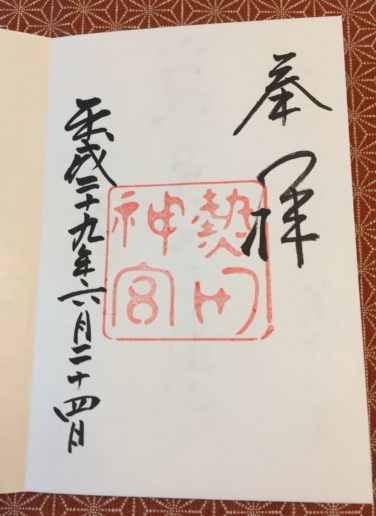 奉拝
熱田
神宮
平成二十九年六月二十四日